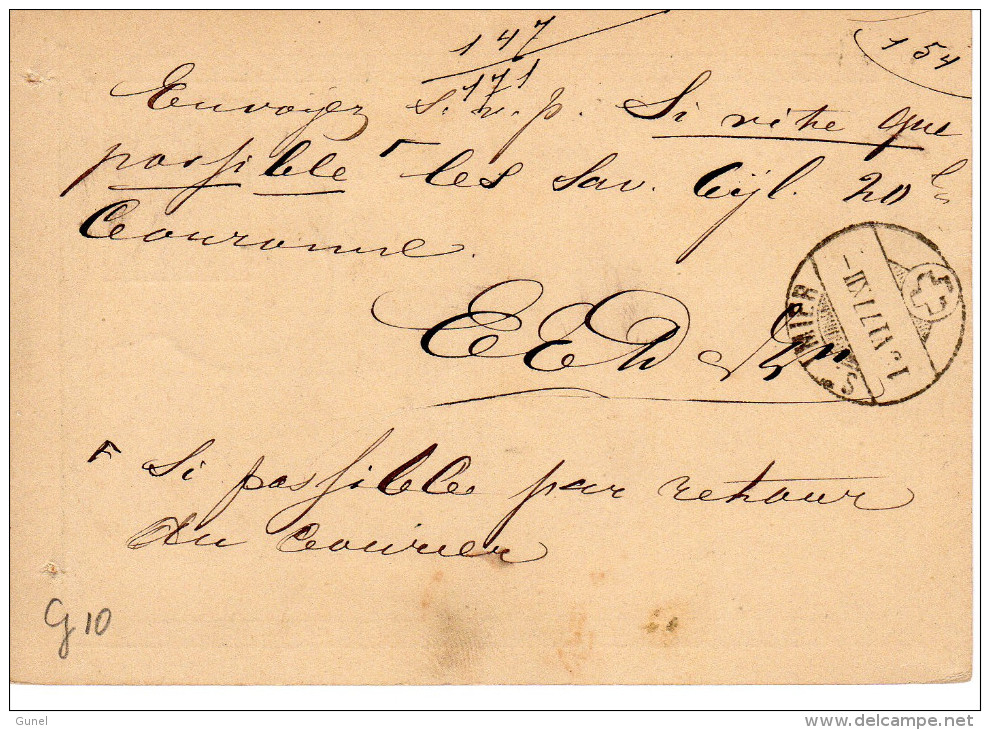 147
171
154
Envoyez s. v. p. Si vite que
possible ⌜ les sav. Cyl. 20 l
Couronne.
ST IMIER
1. VI 77 XII -
⌜ Si possible par retour
du Courier
G 10
Gunel
www.delcampe.net